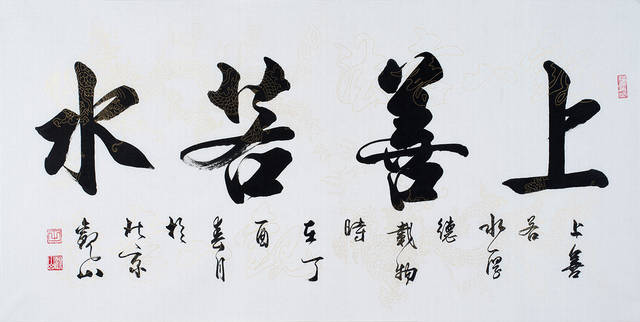 上善若水
上善若水厚德載物時在丁酉春月於北京